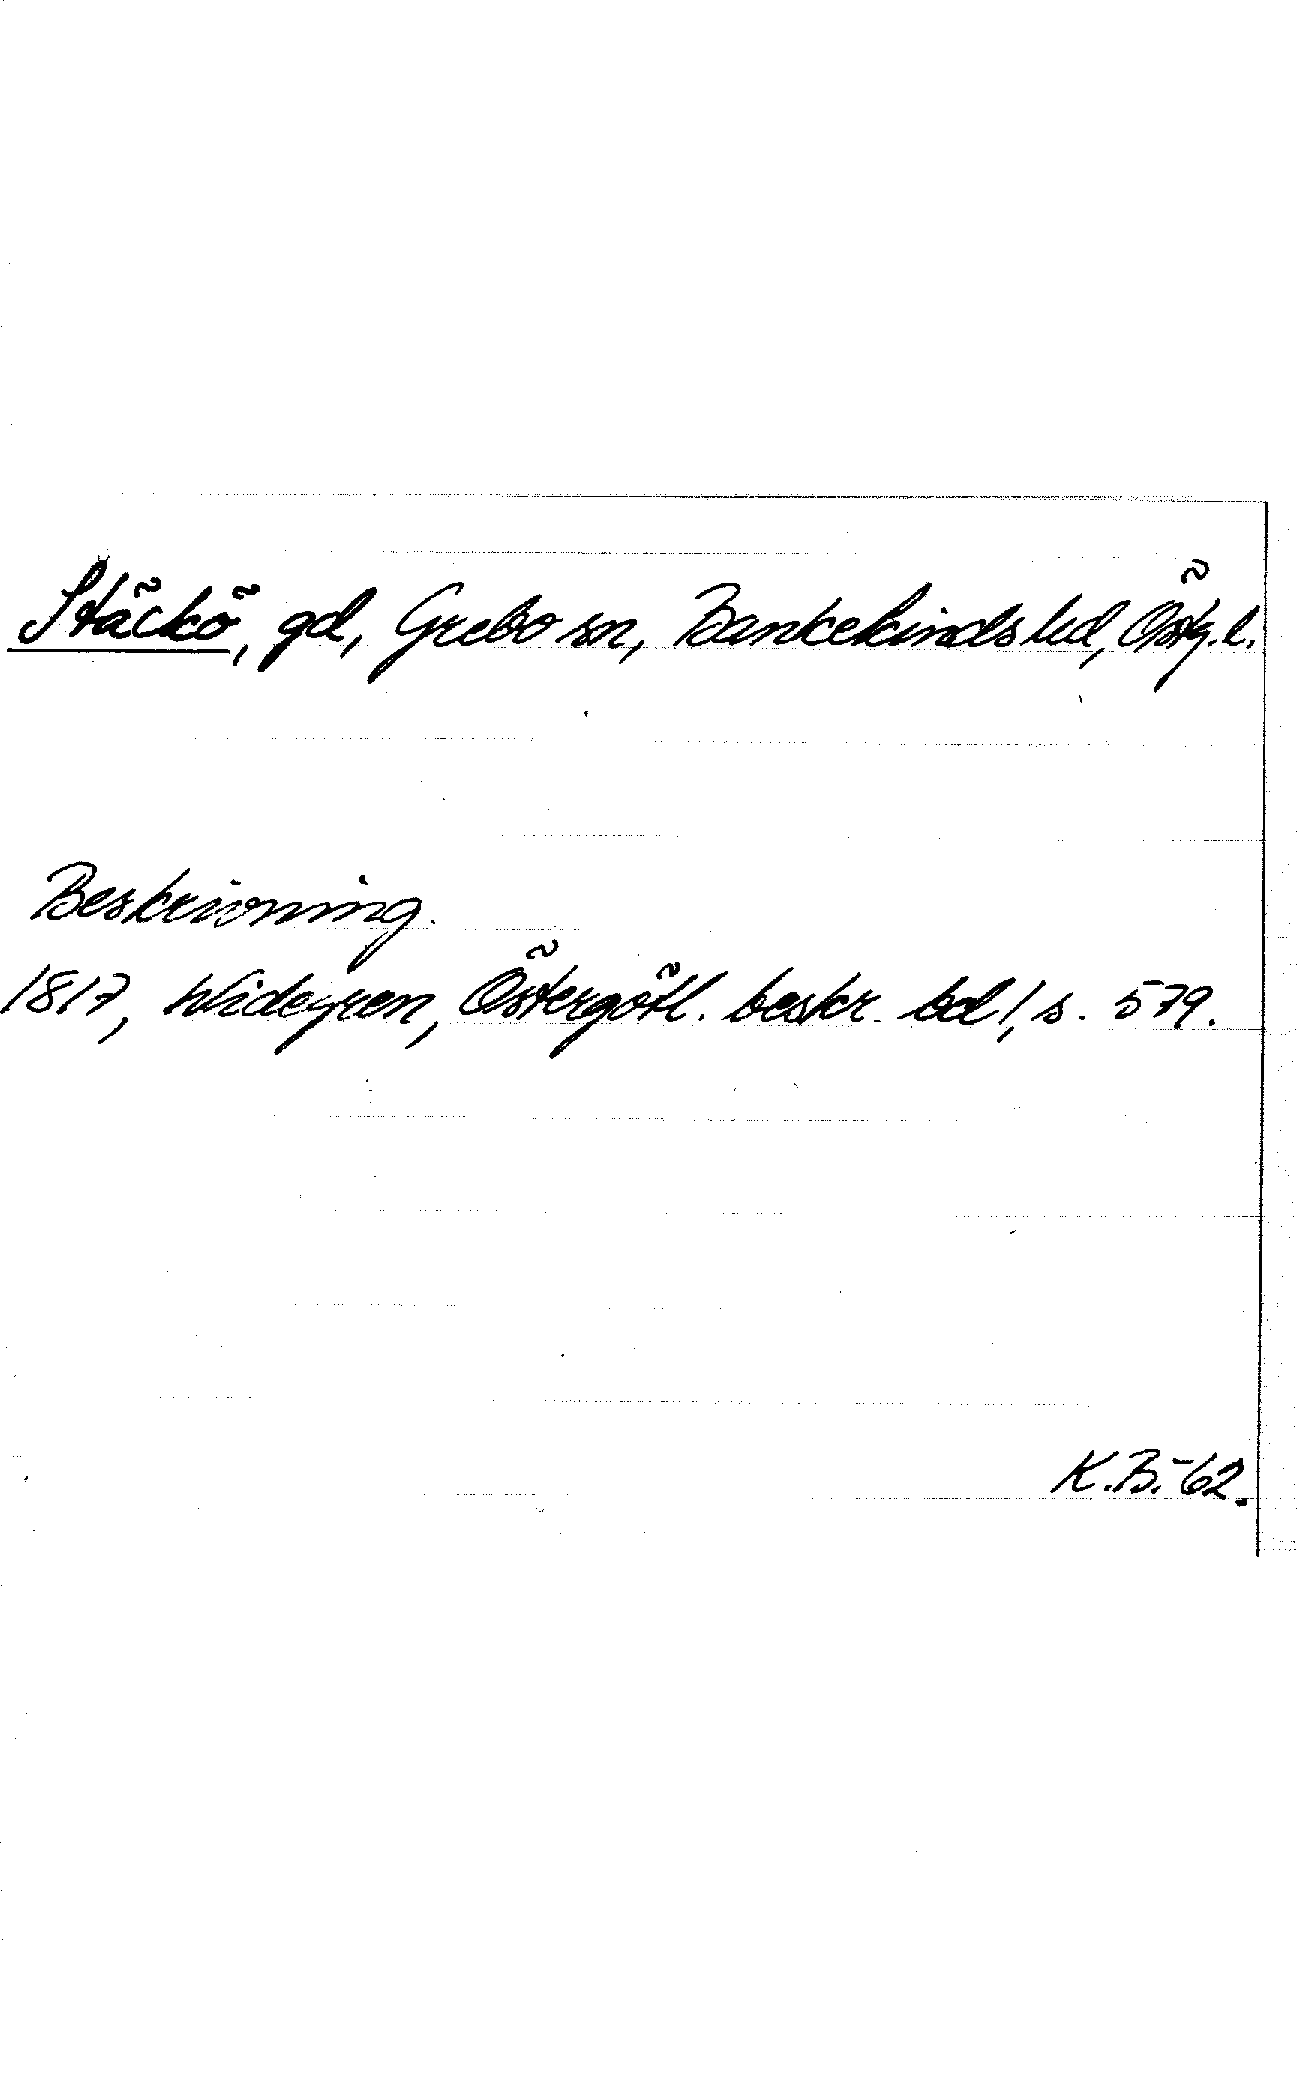 Stäckö, gd, Grebo sn, Bankekinds hd, Östg. l.
Beskrivning.
1817, Widegren, Östergötl. beskr. bd 1, s. 579.
K.B.-62.